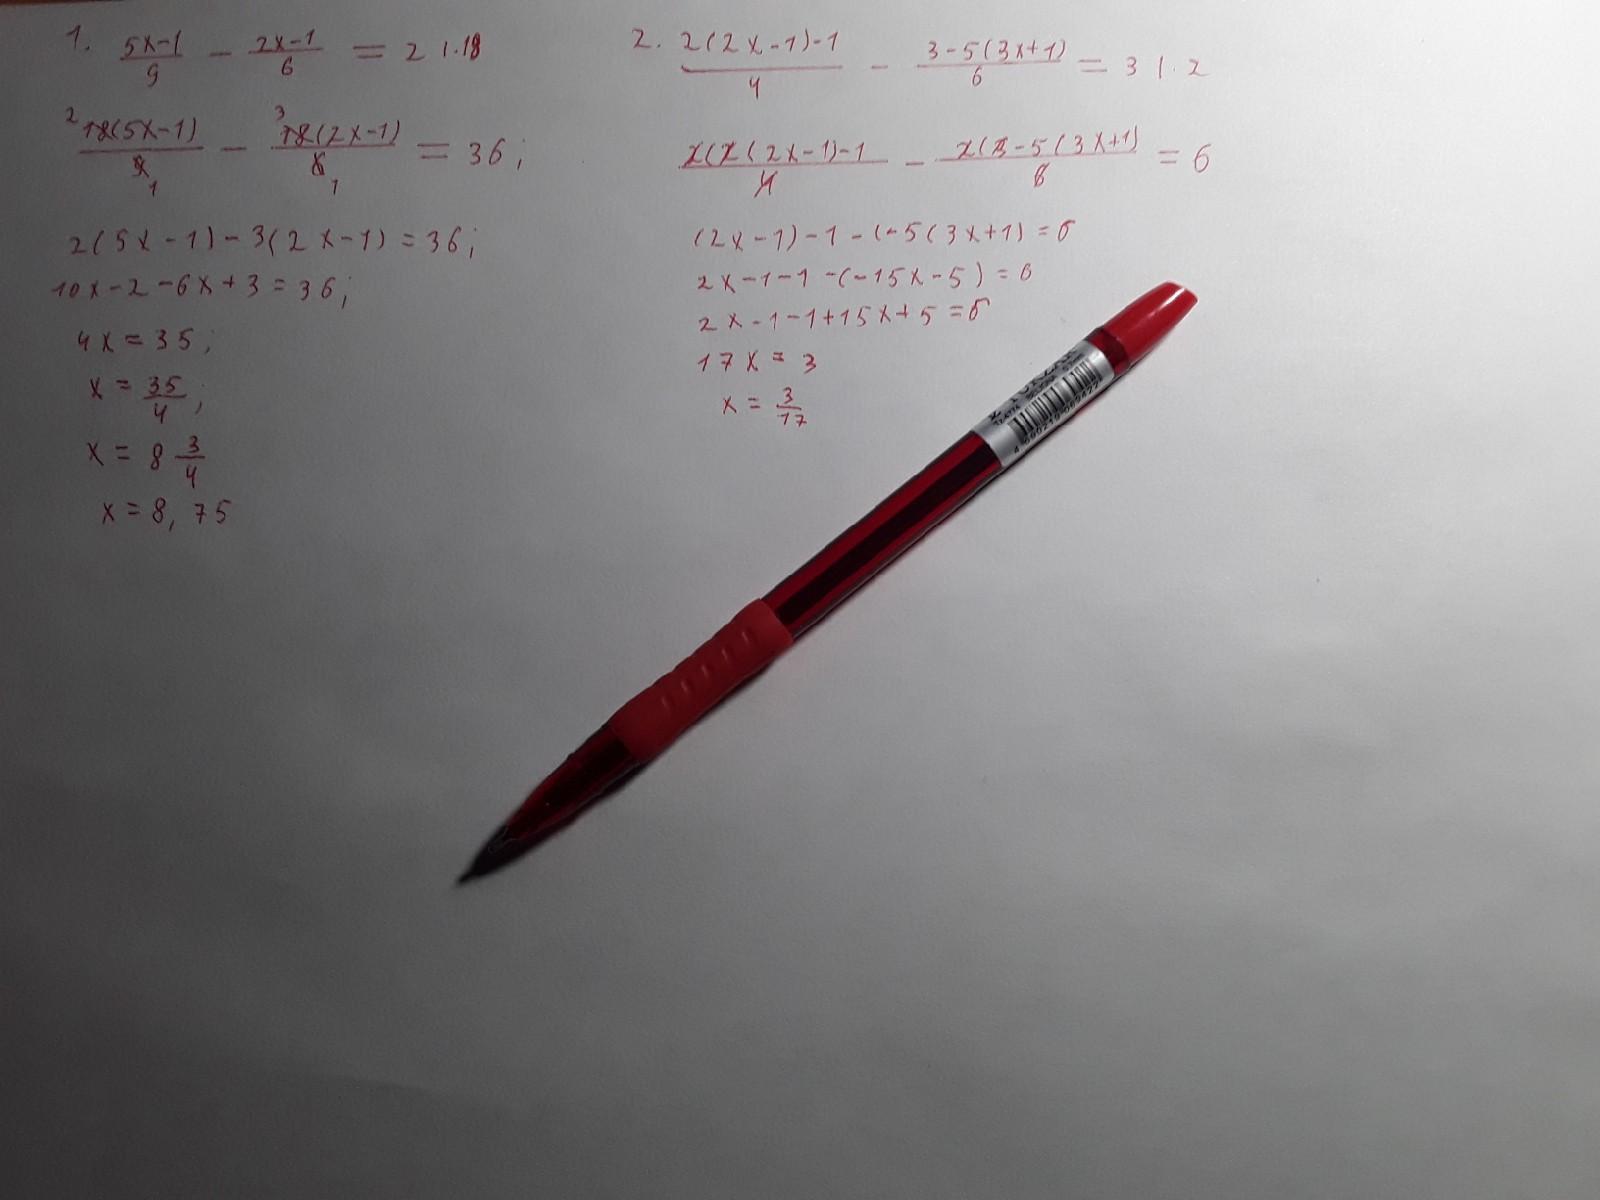 1. (5x-1)/9 - (2x-1)/6 = 2 |·18
2 18(5x-1)/9 1 - 3 18(2x-1)/6 1 = 36;
2(5x-1)-3(2x-1)=36;
10x-2-6x+3=36;
4x=35;
x=35/4;
x=8 3/4
x=8,75
2. (2(2x-1)-1)/4 - (3-5(3x+1))/6 = 3 |·2
2(2(2x-1)-1/4 - 2(3-5(3x+1)/6 = 6
(2x-1)-1-(-5(3x+1)=6
2x-1-1-(-15x-5)=6
2x-1-1+15x+5=6
17x=3
x=3/17